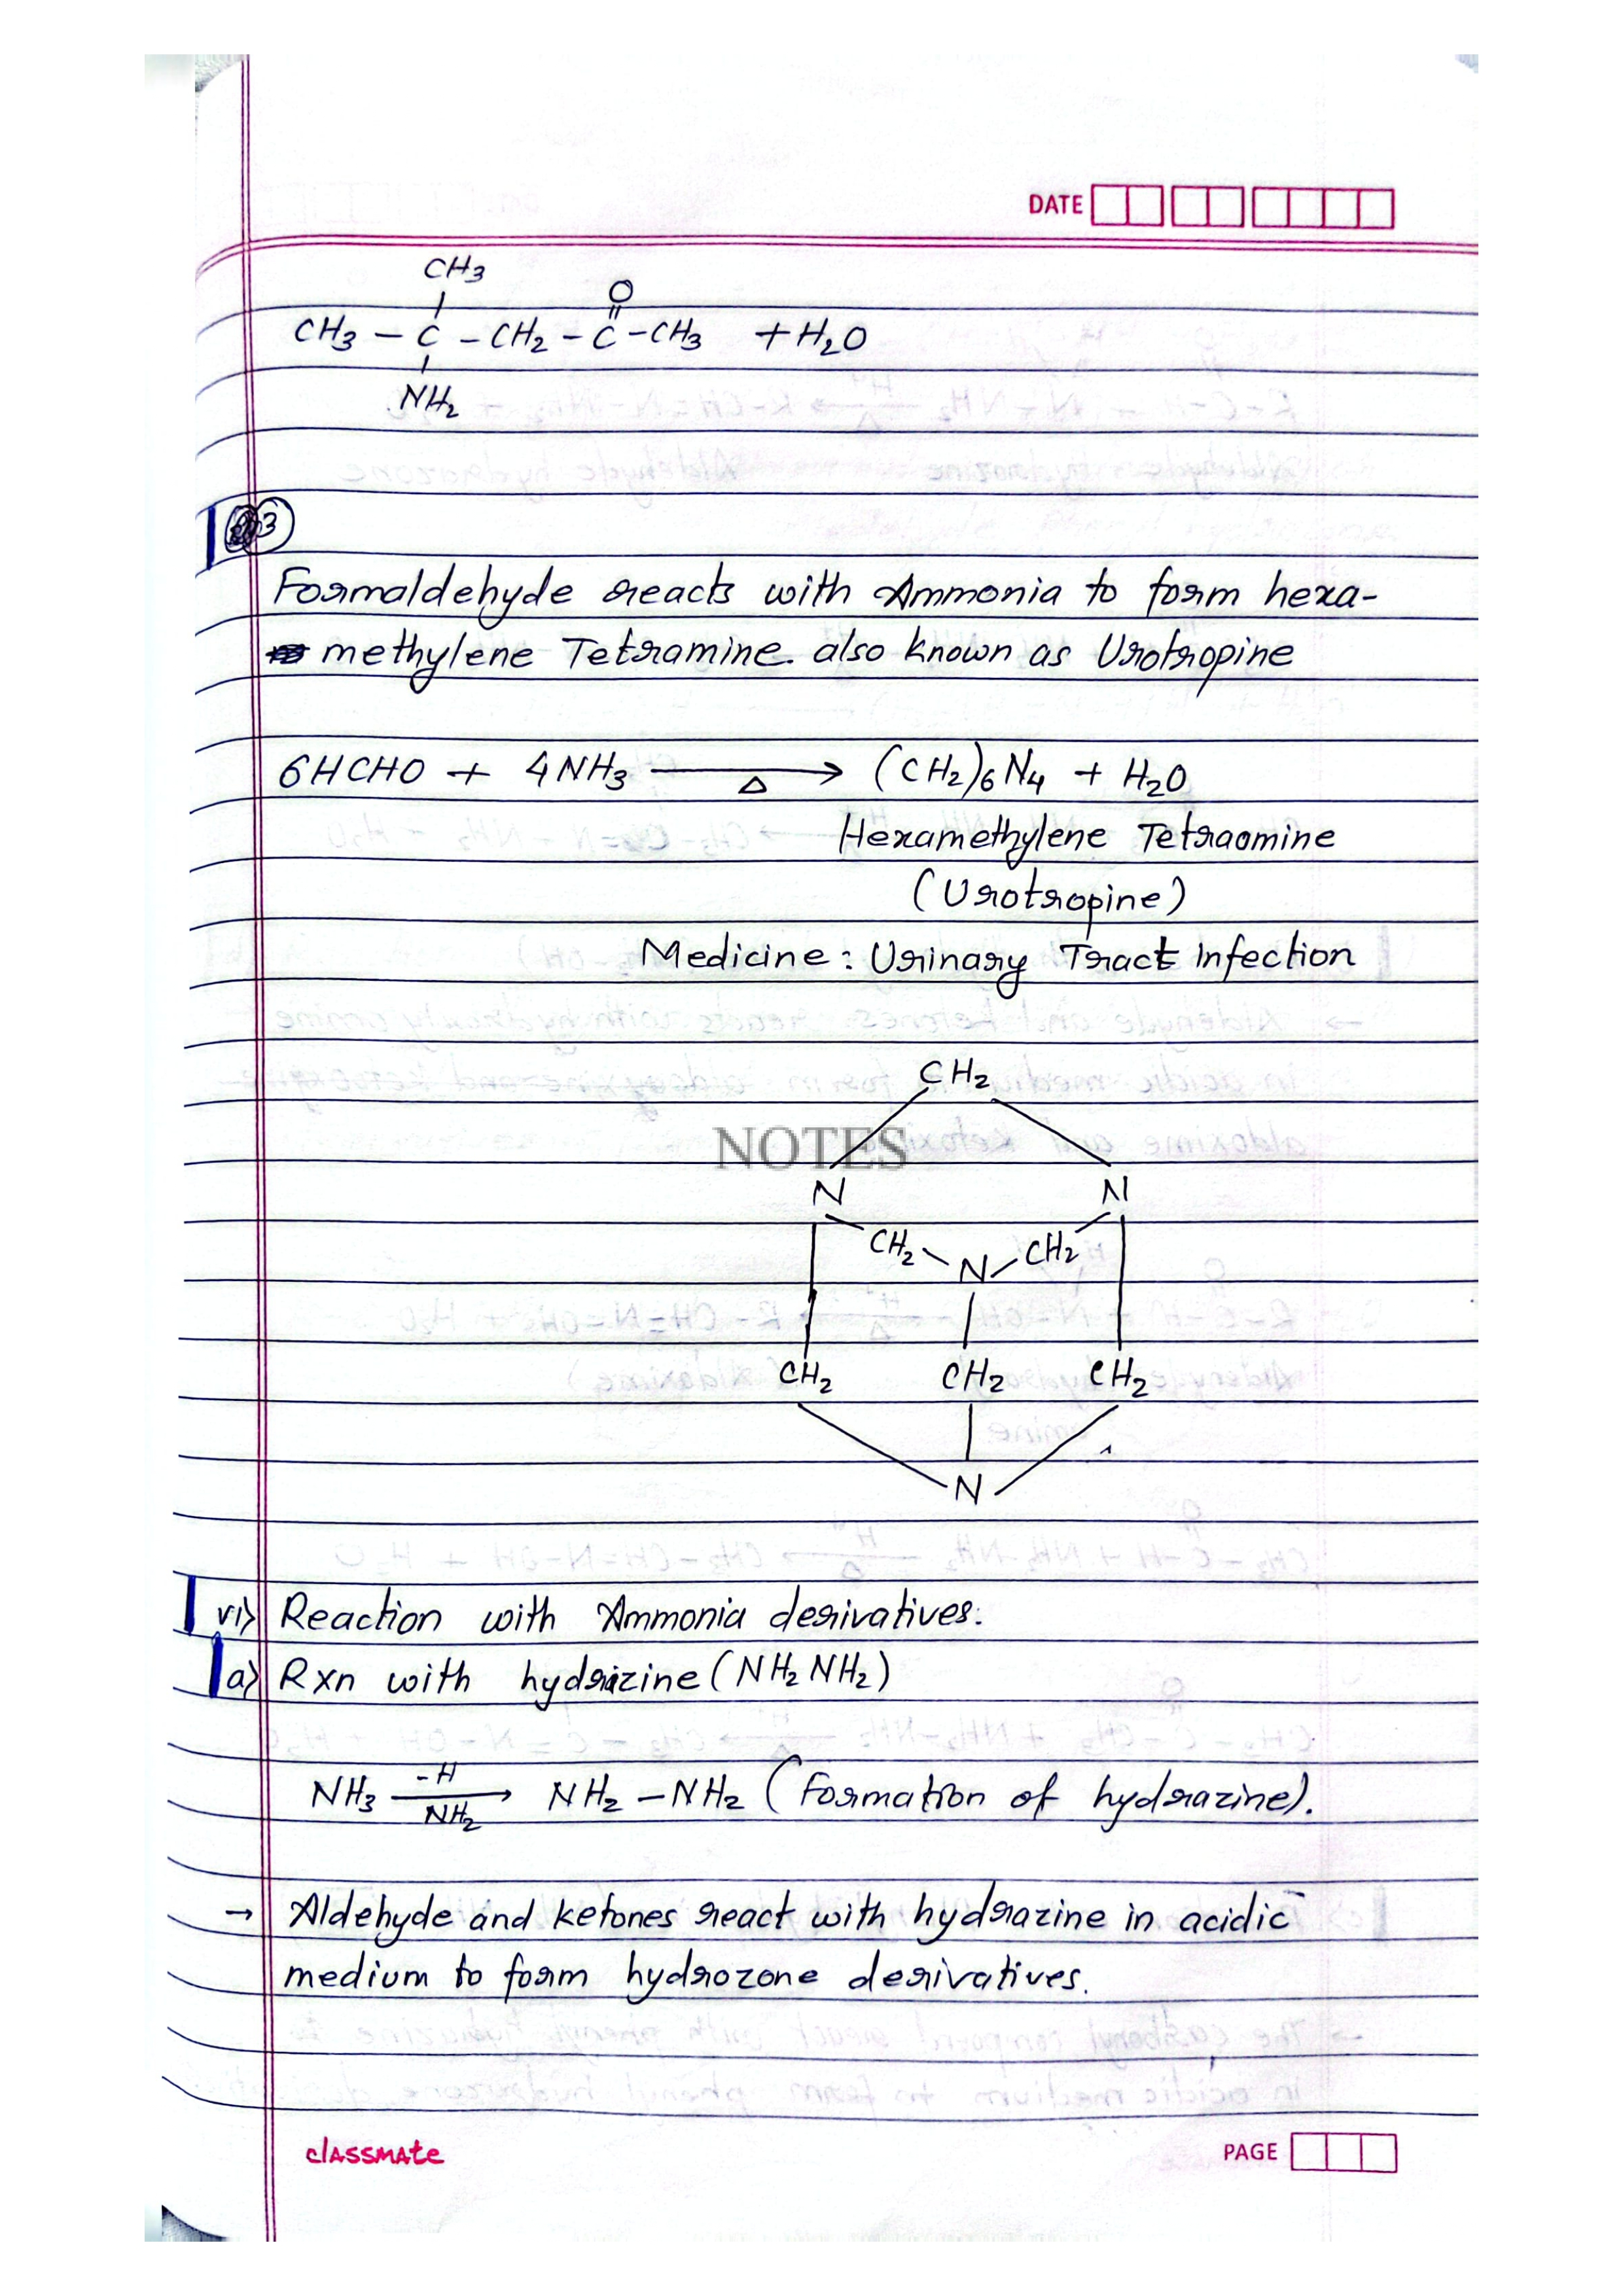 DATE
CH3
O
CH3 – C – CH2 – C – CH3 + H2O
NH2
3
Formaldehyde reacts with Ammonia to form hexa-
methylene Tetramine. also known as Urotropine
6HCHO + 4NH3 ⟶ (CH2)6N4 + H2O
Δ
Hexamethylene Tetraamine
(Urotropine)
Medicine : Urinary Tract Infection
CH2
NOTES
N N
CH2 N CH2
CH2 CH2 CH2
N
vi) Reaction with Ammonia derivatives:
a) Rxn with hydrazine (NH2NH2)
-H
NH3 ⟶ NH2 – NH2 (Formation of hydrazine).
NH2
→ Aldehyde and ketones react with hydrazine in acidic
medium to form hydrozone derivatives.
classmate
PAGE